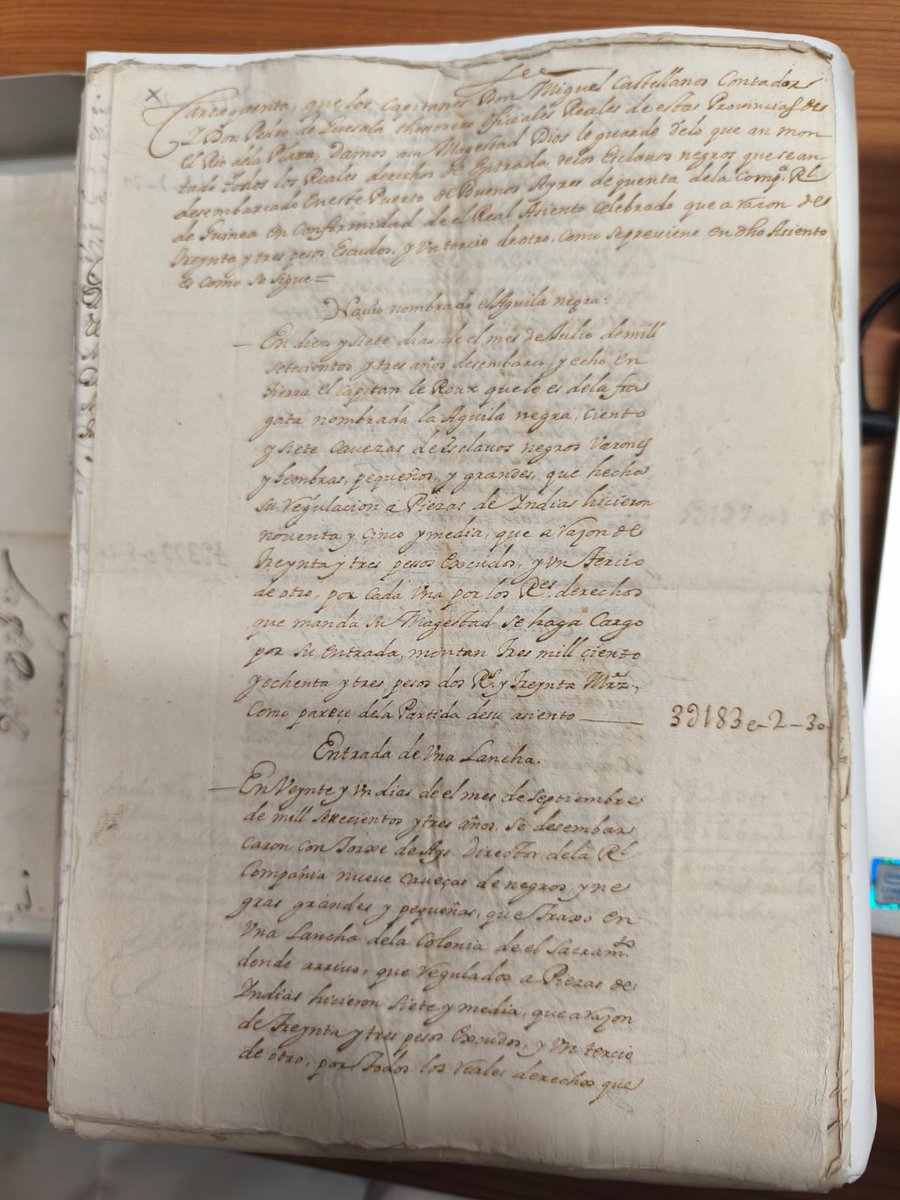 Carta quenta, que los Capitanes Don Miguel Castellanos Contador
Y Don Pedro de thesorero oficiales Reales de estas Provincias del
el Rio de la Plata, damos a su Magestad Dios le guarde delo que an mon
tado todos los Reales derechos de Entrada delos Esclavos negros que se an
desembarcado en este Puerto de Buenos Ayres de quenta dela Compª Rl
de Guinea en Conformidad de el Real Asiento Celebrado que a razon de
treynta y tres pesos Escudos, y un tercio de otro, como se previene en dho Asiento
es como se sigue=
Navio nombrado el Aguila negra:
En diez y siete dias de el mes de Julio de mill
setecientos y tres años desembarco, y echo en
tierra el Capitan le Roux que lo es dela fra
gata nombrada la Aguila negra, ciento
y siete cavezas de Esclavos negros Varones
y hembras, pequeños, y grandes, que hecha
su regulacion a Piezas de Indias hicieron
noventa y cinco y media, que a razon de
treynta y tres pesos Excudos, y un tercio
de otro, por cada una por los Res. derechos
que manda su Magestad se haga Cargo
por su entrada, montan tres mill ciento
y ochenta y tres pesos dos Rs. y treynta Mrz,
Como parece dela Partida de su asiento — 3U183 ps 2–30
Entrada de Una Lancha.
En Veynte y un dias de el mes de Septiembre
de mill setecientos y tres años, se desembar
caron con Jorxe de Ays Director dela Rl
Compañia nueve caveças de negros, y ne
gras grandes y pequeñas, que traxo en
Una Lancha dela Colonia de el Sacramto
donde arrivo, que regulados a Piezas de
Indias hicieron siete y media, que a razon
de treynta y tres pesos Excudos, y un tercio
de otro, por todos los reales derechos que